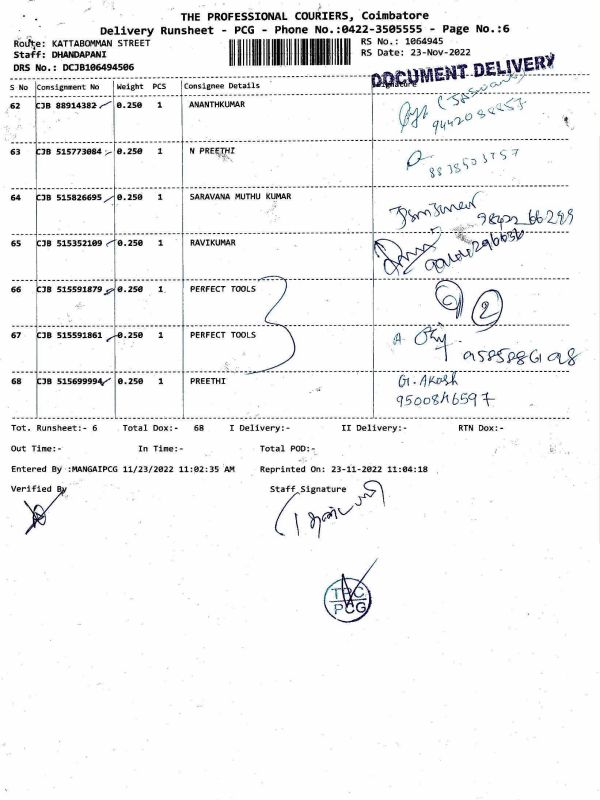 THE PROFESSIONAL COURIERS, Coimbatore
Delivery Runsheet - PCG - Phone No.:0422-3505555 - Page No.:6
Route: KATTABOMMAN STREET
Staff: DHANDAPANI
DRS No.: DCJB106494506
RS No.: 1064945
RS Date: 23-Nov-2022
DOCUMENT DELIVERY
S No Consignment No Weight PCS Consignee Details Signature
62 CJB 88914382 0.250 1 ANANTHKUMAR
63 CJB 515773084 0.250 1 N PREETHI
64 CJB 515826695 0.250 1 SARAVANA MUTHU KUMAR
65 CJB 515352109 0.250 1 RAVIKUMAR
66 CJB 515591879 0.250 1 PERFECT TOOLS 2
67 CJB 515591861 0.250 1 PERFECT TOOLS
68 CJB 515699994 0.250 1 PREETHI G. Akash
9500846597
Tot. Runsheet:- 6 Total Dox:- 68 I Delivery:- II Delivery:- RTN Dox:-
Out Time:- In Time:- Total POD:-
Entered By :MANGAIPCG 11/23/2022 11:02:35 AM Reprinted On: 23-11-2022 11:04:18
Verified By Staff Signature
TPC
PCG